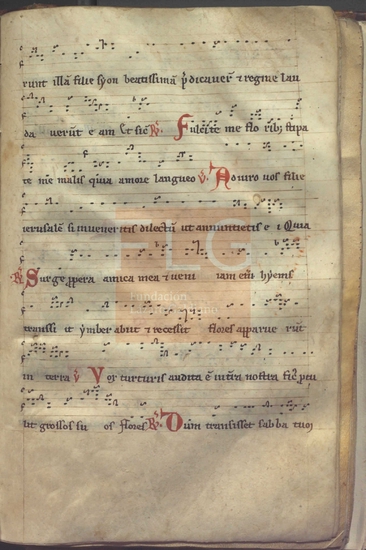 runt illā filie syon beatissimā p̄dicauer̄ ⁊ regine lau
da uerūt e am Et sic℟. Fulcite me flo rib; stipa
te me malis quia amore langueo ℣. Adiuro uos filie
ierusalē si inueneritis dilectū ut annuntietis e i Quia
℟ Surge ꝓpera amica mea ⁊ ueni iam eīn hyems
transiit ymber abiit ⁊ recessit flores apparue rūt
in terra ℣ Vox turturis audita ē in tr̄a nostra fic̄
lit grossos su os flores ℟. Dum transisset sabba tum
FLG
Fundación